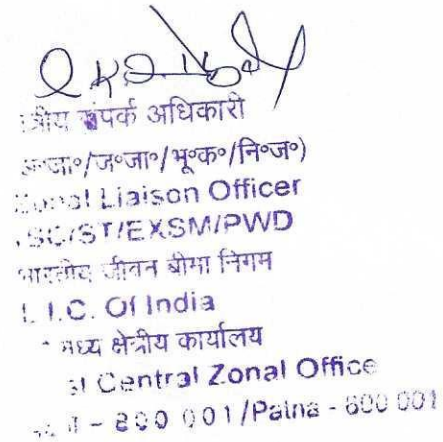 संपर्क अधिकारी
/ज॰जा॰/भू॰क॰/नि॰ज॰)
Zonal Liaison Officer
SC/ST/EXSM/PWD
भारतीय जीवन बीमा निगम
L.I.C. Of India
मध्य क्षेत्रीय कार्यालय
Central Zonal Office
- 800 001/Patna - 800 001